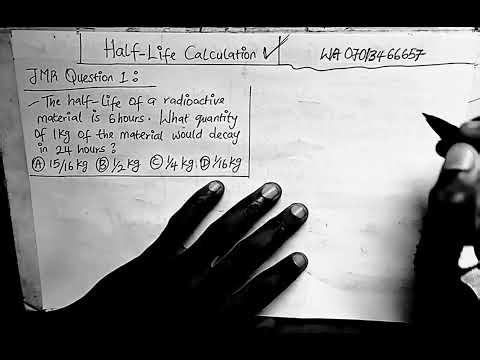 Half-Life Calculation ✓ WA 07013466657
JMB Question 1:
- The half-life of a radioactive
material is 6 hours. What quantity
of 1kg of the material would decay
in 24 hours?
(A) 15/16 kg (B) 1/2 kg (C) 1/4 kg (D) 1/16 kg